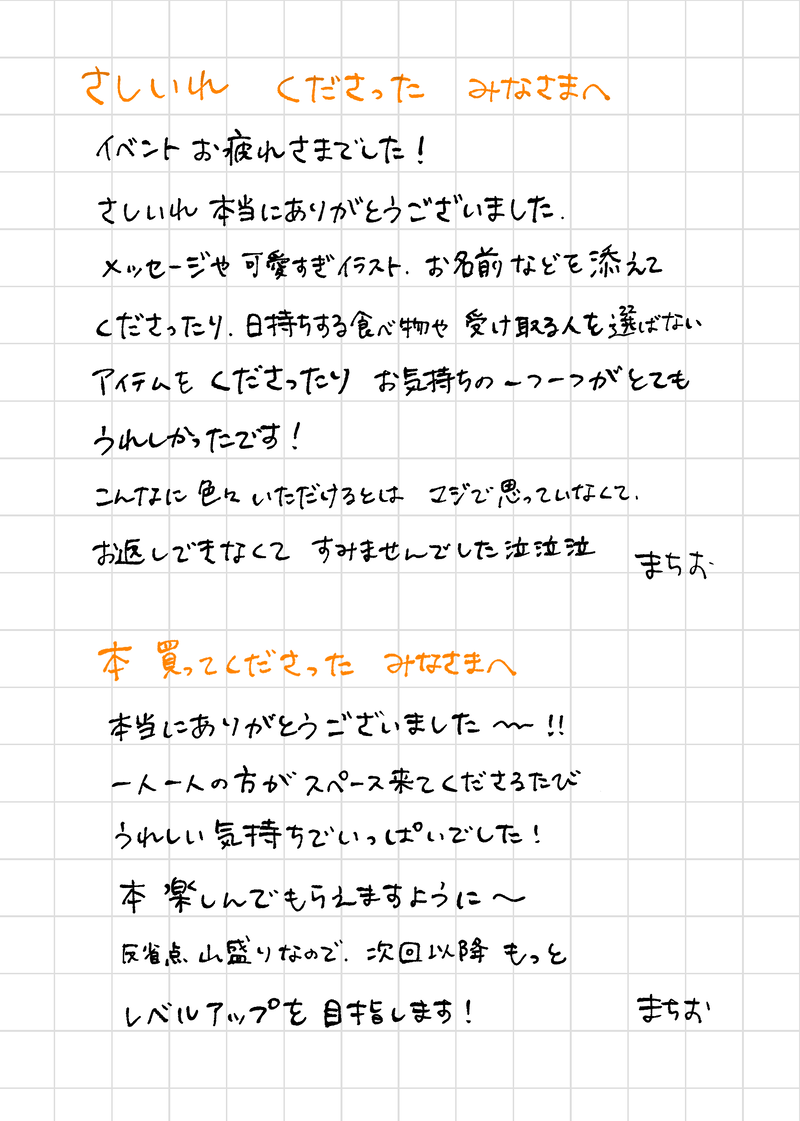 さしいれ くださった みなさまへ
イベント お疲れさまでした！
さしいれ 本当にありがとうございました.
メッセージや 可愛すぎイラスト. お名前などを添えて
くださったり. 日持ちする食べ物や 受け取る人を選ばない
アイテムを くださったり お気持ちの 一つ一つが とても
うれしかったです！
こんなに 色々 いただけるとは マジで思っていなくて.
お返しできなくて すみませんでした 泣泣泣
まちお
本 買ってくださった みなさまへ
本当にありがとうございました 〜〜 !!
一人一人の方が スペース来てくださるたび
うれしい気持ちでいっぱいでした！
本 楽しんでもらえますように〜
反省点 山盛りなので. 次回以降 もっと
レベルアップを 目指します！
まちお